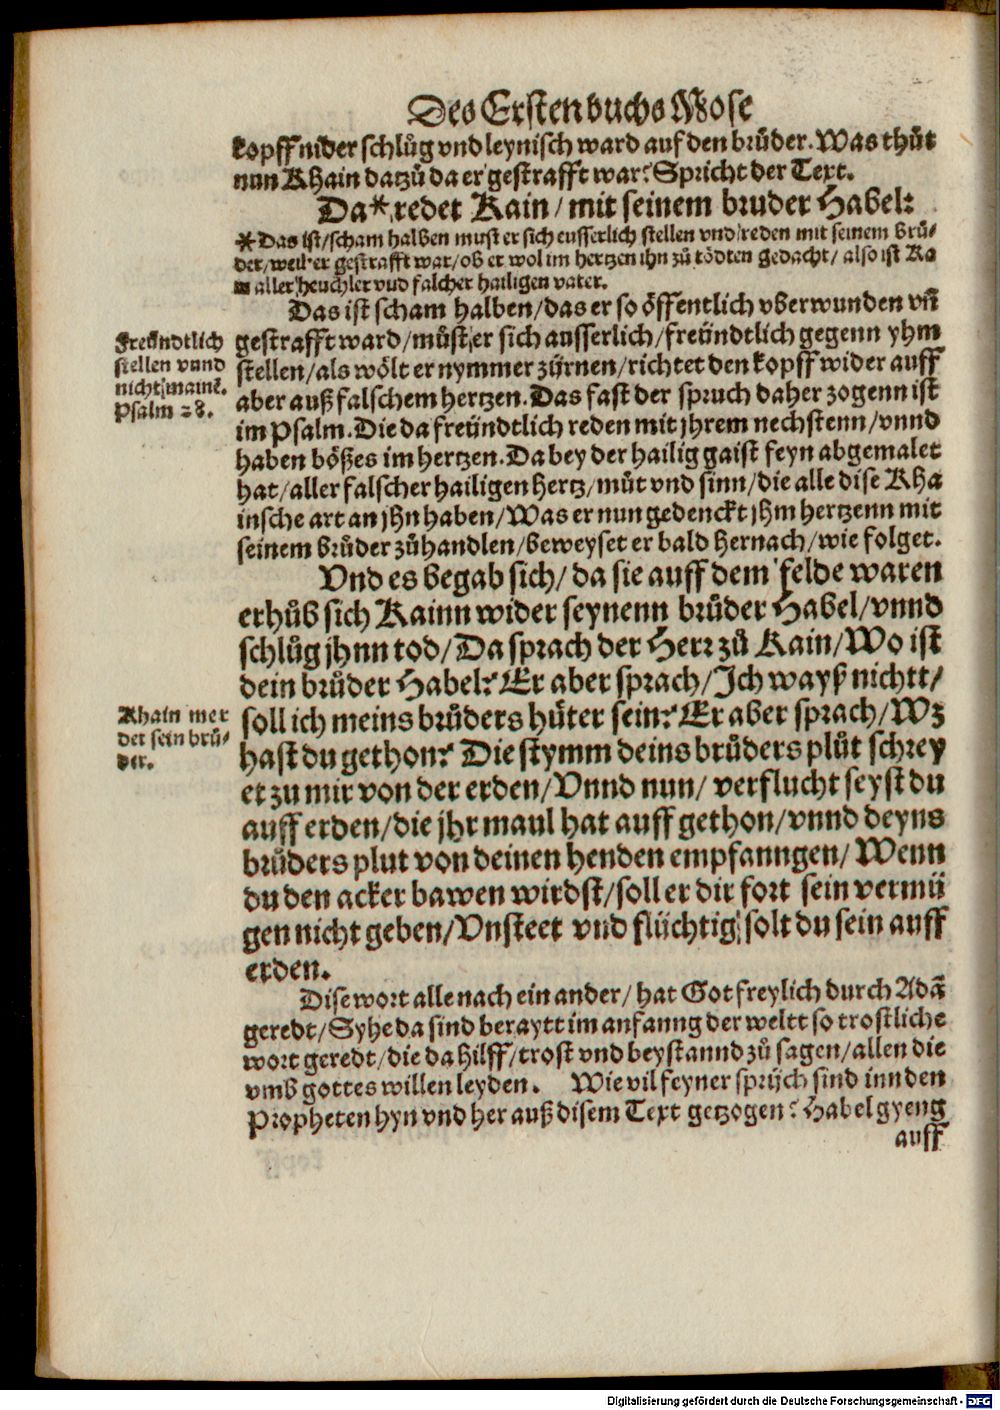 Des Ersten buchs Mose
kopff nider schlůg vnd leynisch ward auf den brůder. Was thůt
nun Khain datzů da er gestrafft war? Spricht der Text.
Da* redet Kain / mit seinem bruder Habel:
*Das ist / scham halben must er sich eusserlich stellen vnd reden mit seinem brů-
der / weil er gestrafft war / ob er wol im hertzen ihn zů tödten gedacht / also ist Ka
in aller heuchler vnd falcher hailigen vater.
Das ist scham halben / das er so öffentlich vberwunden vñ
Freündtlich
stellen vnnd
nicht mainē.
Psalm 28.
gestrafft ward / můst er sich ausserlich / freündtlich gegenn yhm
stellen / als wölt er nymmer zürnen / richtet den kopff wider auff
aber auß falschem hertzen. Das fast der spruch daher zogenn ist
im Psalm. Die da freündtlich reden mit jhrem nechstenn / vnnd
haben bößes im hertzen. Da bey der hailig gaist feyn abgemalet
hat / aller falscher hailigen hertz / můt vnd sinn / die alle dise Kha
insche art an jhn haben / Was er nun gedenckt jhm hertzenn mit
seinem brůder zůhandlen / beweyset er bald hernach / wie folget.
Vnd es begab sich / da sie auff dem felde waren
erhůb sich Kainn wider seynenn brůder Habel / vnnd
schlůg jhnn tod / Da sprach der Herr zů Kain / Wo ist
dein brůder Habel? Er aber sprach / Ich wayß nichtt /
Khain mer
det sein brů-
der.
soll ich meins brůders hüter sein? Er aber sprach / Wz
hast du gethon? Die stymm deins brůders plůt schrey
et zu mir von der erden / Vnnd nun / verflucht seyst du
auff erden / die jhr maul hat auff gethon / vnnd deyns
brůders plut von deinen henden empfanngen / Wenn
du den acker bawen wirdst / soll er dir fort sein vermü
gen nicht geben / Vnsteet vnd flüchtig solt du sein auff
erden.
Dise wort alle nach ein ander / hat Got freylich durch Adā
geredt / Syhe da sind beraytt im anfanng der weltt so trostliche
wort geredt / die da hilff / trost vnd beystannd zů sagen / allen die
vmb gottes willen leyden. Wie vil feyner sprüch sind inn den
Propheten hyn vnd her auß disem Text getzogen? Habel gyeng
auff
Digitalisierung gefördert durch die Deutsche Forschungsgemeinschaft - DFG